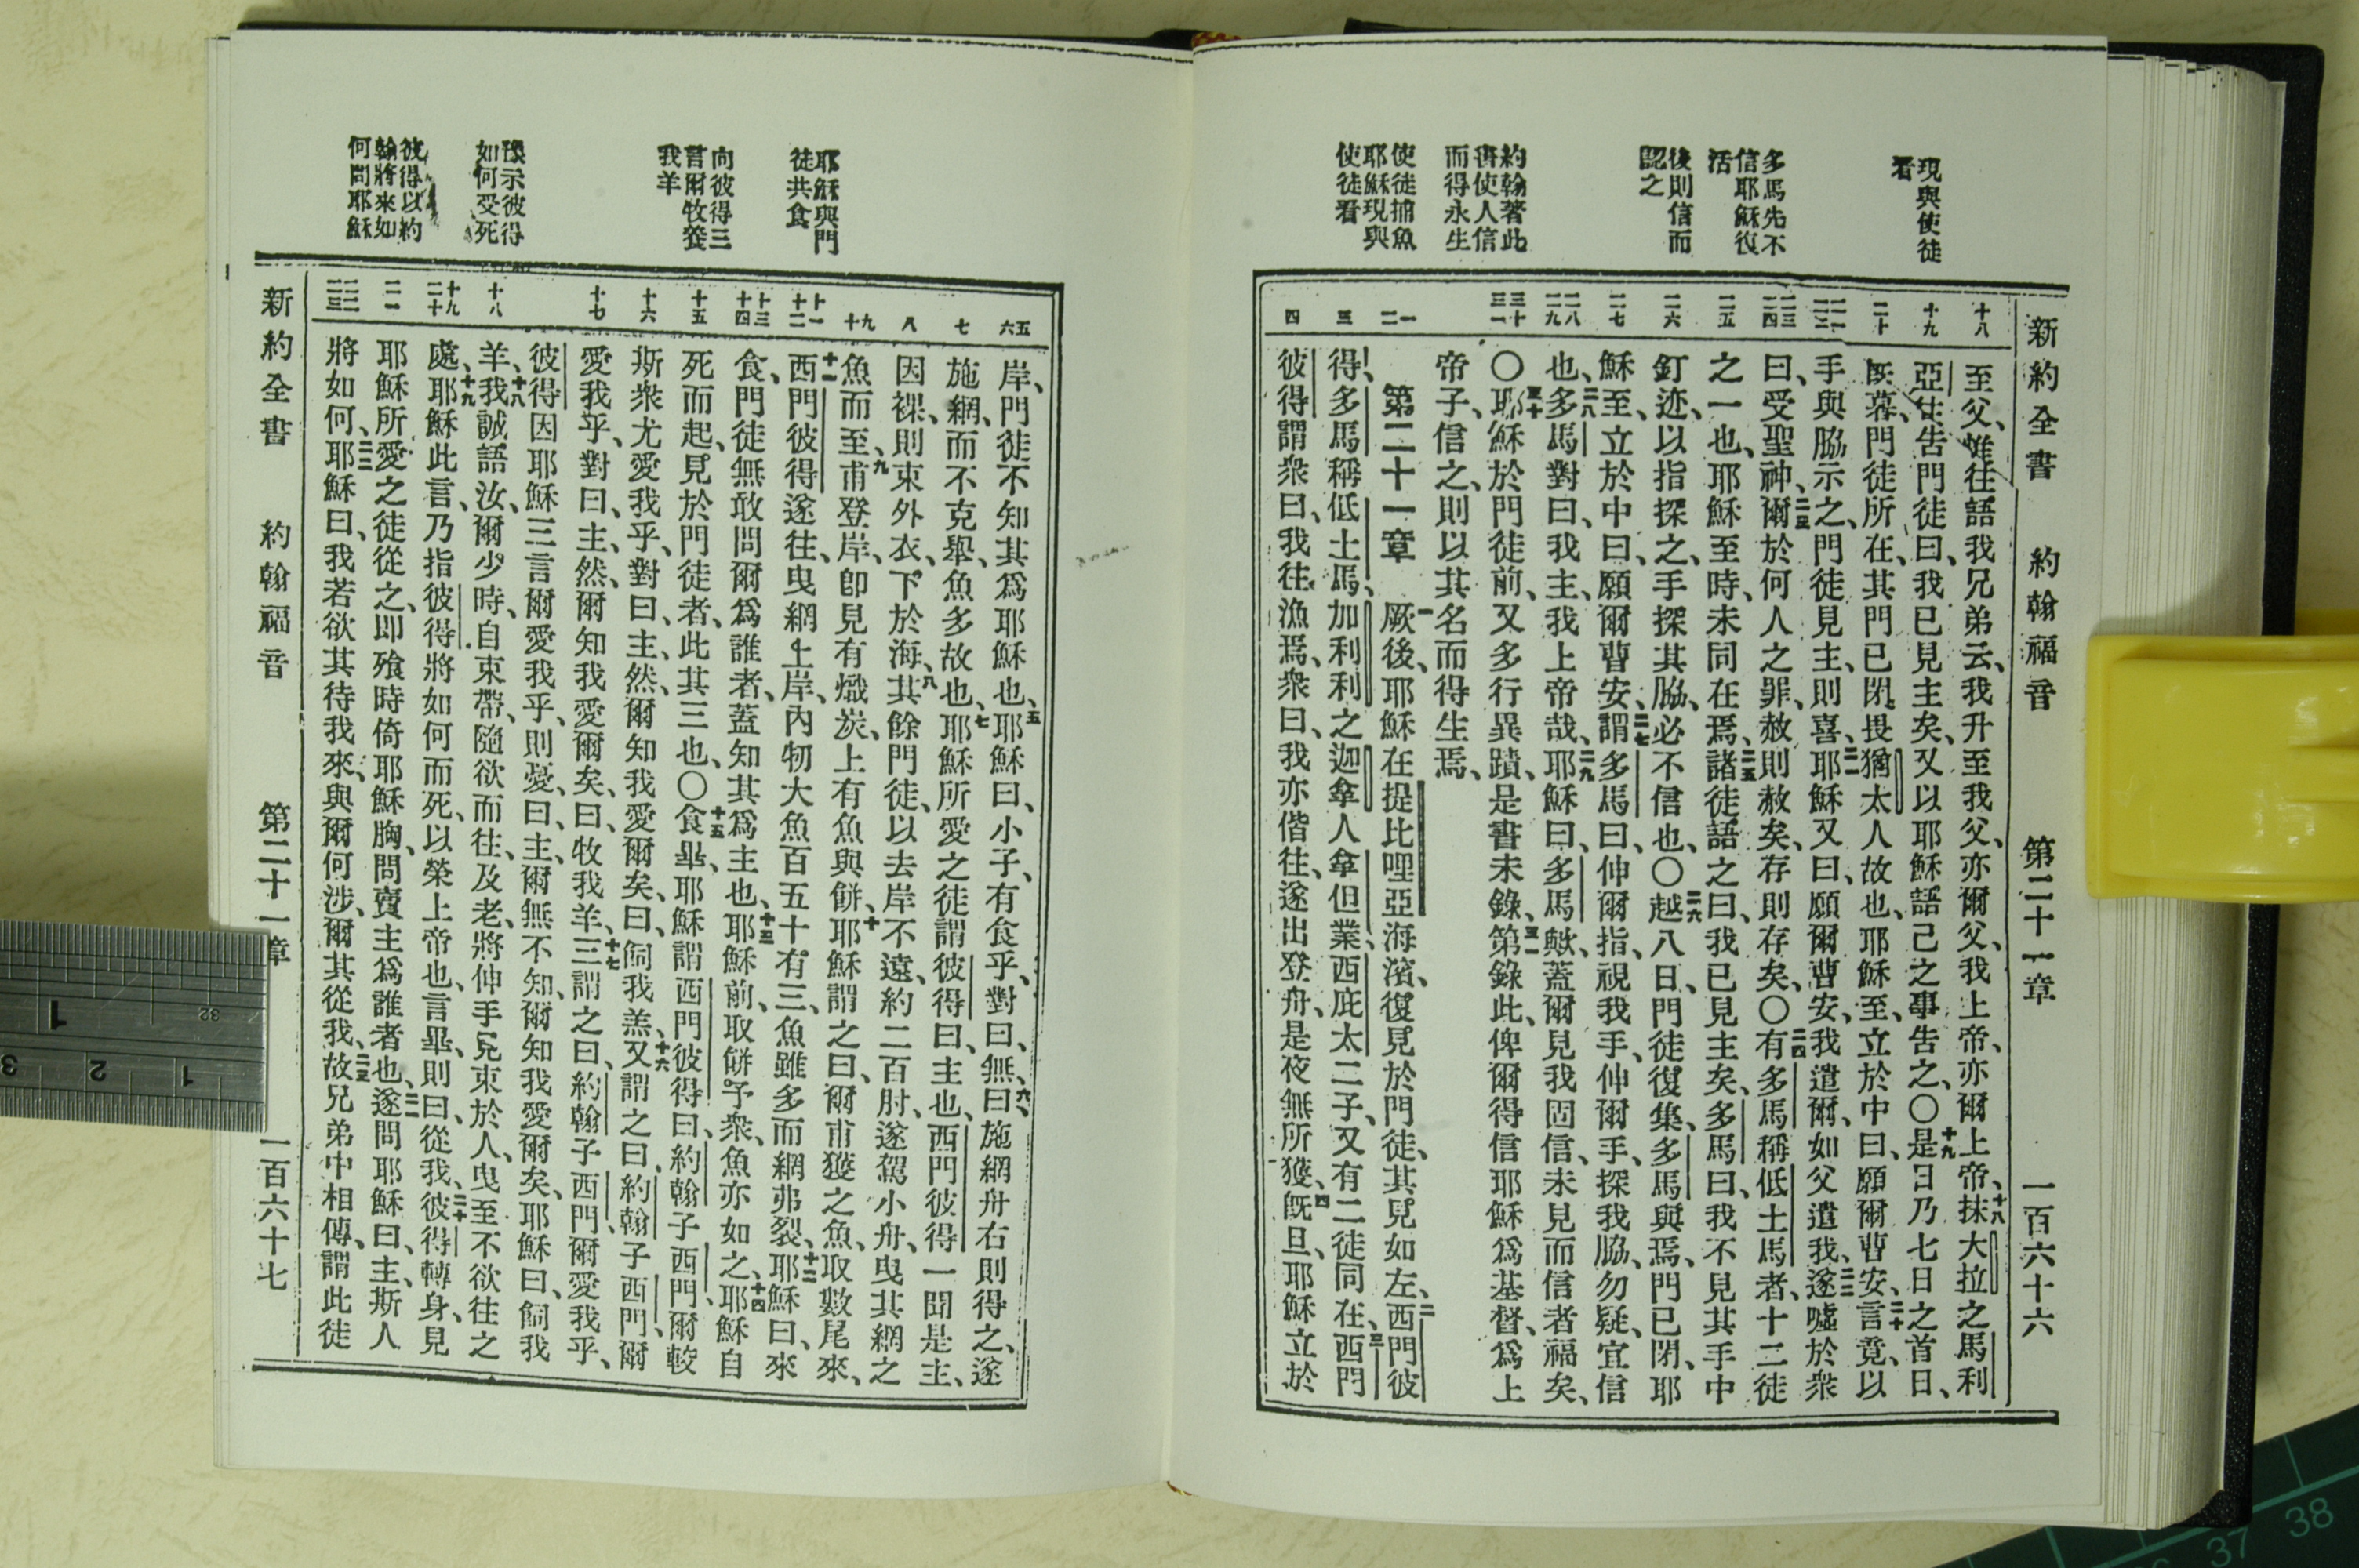 新約全書 約翰福音 第二十一章 一百六十六
現與使徒
看
多馬先不
信耶穌復
活
後則信而
認之
約翰著此
書使人信
而得永生
使徒捕魚
耶穌現與
使徒看
十八 十九 二十 二一 二二 二三 二四 二五 二六 二七 二八 二九 三十 三一 一 二 三 四
至父、惟往語我兄弟云、我升至我父、亦爾父、我上帝、亦爾上帝、十八抹大拉之馬利
亞往告門徒曰、我已見主矣、又以耶穌語己之事告之、〇十九是日乃七日之首日、
旣暮、門徒所在、其門已閉、畏猶太人故也、耶穌至、立於中曰、願爾曹安、二十言竟、以
手與脇示之、門徒見主、則喜、二一耶穌又曰、願爾曹安、我遣爾、如父遣我、二二遂噓於衆
曰、受聖神、二三爾於何人之罪、赦則赦矣、存則存矣、〇二四有多馬稱低土馬者、十二徒
之一也、耶穌至時、未同在焉、二五諸徒語之曰、我已見主矣、多馬曰、我不見其手中
釘迹、以指探之、手探其脇、必不信也、〇二六越八日、門徒復集、多馬與焉、門已閉、耶
穌至、立於中曰、願爾曹安、二七謂多馬曰、伸爾指、視我手、伸爾手、探我脇、勿疑、宜信
也、二八多馬對曰、我主、我上帝哉、二九耶穌曰、多馬歟、蓋爾見我固信、未見而信者福矣、
〇三十耶穌於門徒前、又多行異蹟、是書未錄、三一第錄此、俾爾得信耶穌爲基督、爲上
帝子、信之、則以其名而得生焉、
第二十一章 一厥後、耶穌在提比哩亞海濱、復見於門徒、其見如左、二西門彼
得、多馬稱低土馬、加利利之迦拿人拿但業、西庇太二子、又有二徒同在、三西門
彼得謂衆曰、我往漁焉、衆曰、我亦偕往、遂出登舟、是夜無所獲、四旣旦、耶穌立於
耶穌與門
徒共食
向彼得三
言爾牧養
我羊
豫示彼得
如何受死
彼得以約
翰將來如
何問耶穌
五 六 七 八 九 十 十一 十二 十三 十四 十五 十六 十七 十八 十九 二十 二一 二二 二三
岸、門徒不知其爲耶穌也、五耶穌曰、小子、有食乎、對曰、無、六曰、施網舟右則得之、遂
施網、而不克舉、魚多故也、七耶穌所愛之徒謂彼得曰、主也、西門彼得一聞是主、
因裸、則束外衣、下於海、八其餘門徒、以去岸不遠、約二百肘、遂駕小舟、曳其網之
魚而至、九甫登岸、卽見有熾炭、上有魚與餅、十耶穌謂之曰、爾甫獲之魚、取數尾來、
十一西門彼得遂往、曳網上岸、內牣大魚百五十有三、魚雖多而網弗裂、十二耶穌曰、來
食、門徒無敢問爾爲誰者、蓋知其爲主也、十三耶穌前、取餅予衆、魚亦如之、十四耶穌自
死而起、見於門徒者、此其三也、〇十五食畢、耶穌謂西門彼得曰、約翰子西門、爾較
斯衆尤愛我乎、對曰、主、然、爾知我愛爾矣、曰、飼我羔、十六又謂之曰、約翰子西門、爾
愛我乎、對曰、主、然、爾知我愛爾矣、曰、牧我羊、十七三謂之曰、約翰子西門、爾愛我乎、
彼得因耶穌三言爾愛我乎、則憂、曰、主、爾無不知、爾知我愛爾矣、耶穌曰、飼我
羊、十八我誠語汝、爾少時、自束帶、隨欲而往、及老、將伸手見束於人、曳至不欲往之
處、十九耶穌此言、乃指彼得將如何而死、以榮上帝也、言畢、則曰、從我、二十彼得轉身、見
耶穌所愛之徒從之、卽飧時倚耶穌胸、問賣主爲誰者也、二一遂問耶穌曰、主、斯人
將如何、二二耶穌曰、我若欲其待我來、與爾何涉、爾其從我、二三故兄弟中相傳、謂此徒
新約全書 約翰福音 第二十一章 一百六十七
1
32
3 2 1
37 38